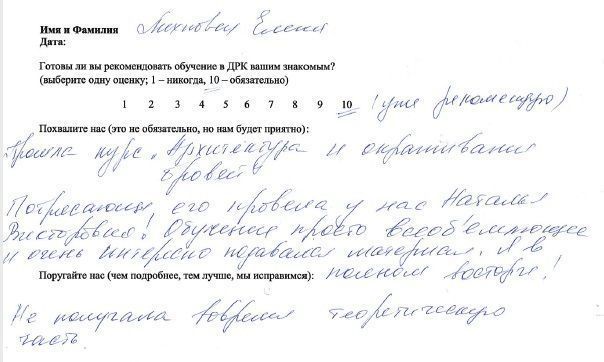 Имя и Фамилия Елена
Дата:
Готовы ли вы рекомендовать обучение в ДРК вашим знакомым?
(выберите одну оценку; 1 – никогда, 10 – обязательно)
1 2 3 4 5 6 7 8 9 10 (уже рекомендую)
Похвалите нас (это не обязательно, но нам будет приятно):
Прошла курс „Архитектура и окрашивание
бровей“
Потрясающе его провела у нас Наталья
Викторовна! Обучение просто всеоб'емлющее
и очень интересно подавался материал. Я в
Поругайте нас (чем подробнее, тем лучше, мы исправимся): полном восторге!
Не получала вовремя теоретическую
часть